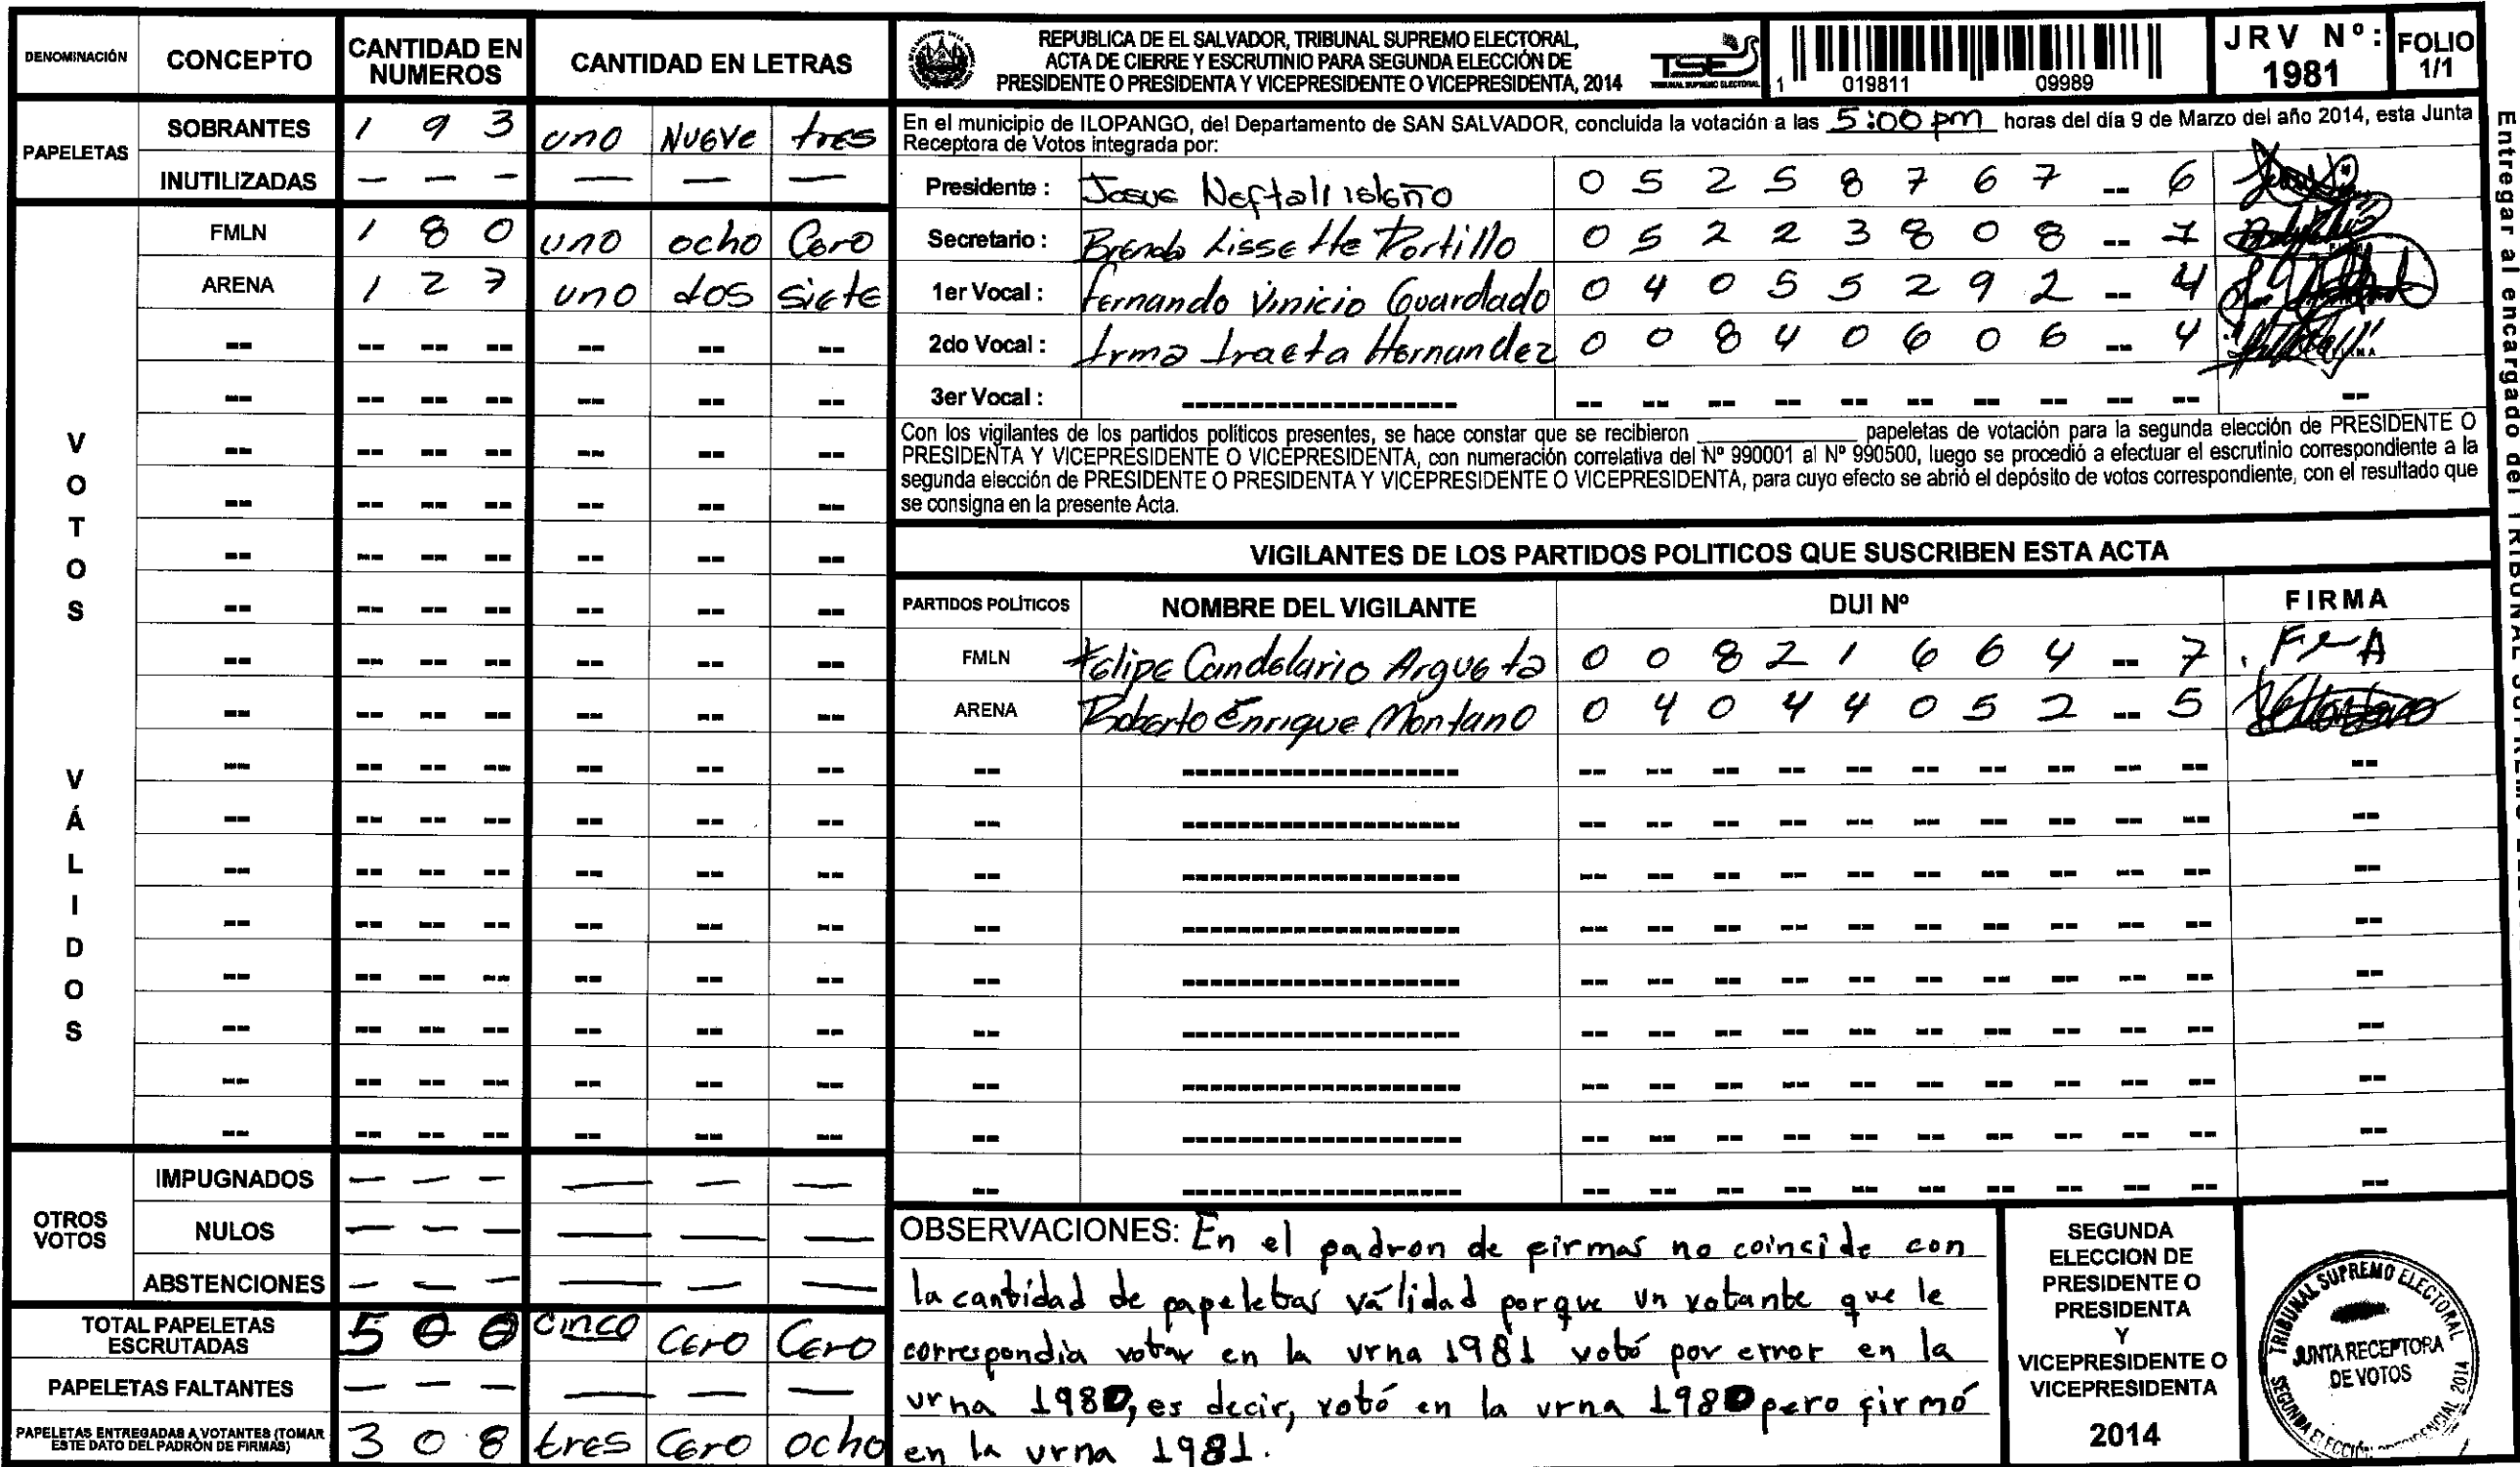 DENOMINACIÓN CONCEPTO CANTIDAD EN NUMEROS CANTIDAD EN LETRAS
PAPELETAS
SOBRANTES 1 9 3 uno Nueve tres
INUTILIZADAS — — — — — —
VOTOS VÁLIDOS
FMLN 1 8 0 uno ocho Cero
ARENA 1 2 7 uno dos siete
OTROS VOTOS
IMPUGNADOS — — — — — —
NULOS — — — — — —
ABSTENCIONES — — — — — —
TOTAL PAPELETAS ESCRUTADAS 5 0 0 cinco Cero Cero
PAPELETAS FALTANTES — — — — — —
PAPELETAS ENTREGADAS A VOTANTES (TOMAR ESTE DATO DEL PADRÓN DE FIRMAS) 3 0 8 tres Cero ocho
REPUBLICA DE EL SALVADOR, TRIBUNAL SUPREMO ELECTORAL,
ACTA DE CIERRE Y ESCRUTINIO PARA SEGUNDA ELECCIÓN DE
PRESIDENTE O PRESIDENTA Y VICEPRESIDENTE O VICEPRESIDENTA, 2014
TSE
TRIBUNAL SUPREMO ELECTORAL
1 019811 09989
JRV Nº: 1981
FOLIO 1/1
En el municipio de ILOPANGO, del Departamento de SAN SALVADOR, concluida la votación a las 5:00 pm horas del día 9 de Marzo del año 2014, esta Junta
Receptora de Votos integrada por:
Presidente : Josue Neftali isleño 0 5 2 5 8 7 6 7 -- 6
Secretario : Brenda Lissette Portillo 0 5 2 2 3 8 0 8 -- 7
1er Vocal : Fernando Vinicio Guardado 0 4 0 5 5 2 9 2 -- 4
2do Vocal : Irma Iraeta Hernandez 0 0 8 4 0 6 0 6 -- 4
3er Vocal :
Con los vigilantes de los partidos políticos presentes, se hace constar que se recibieron ________ papeletas de votación para la segunda elección de PRESIDENTE O
PRESIDENTA Y VICEPRESIDENTE O VICEPRESIDENTA, con numeración correlativa del Nº 990001 al Nº 990500, luego se procedió a efectuar el escrutinio correspondiente a la
segunda elección de PRESIDENTE O PRESIDENTA Y VICEPRESIDENTE O VICEPRESIDENTA, para cuyo efecto se abrió el depósito de votos correspondiente, con el resultado que
se consigna en la presente Acta.
VIGILANTES DE LOS PARTIDOS POLITICOS QUE SUSCRIBEN ESTA ACTA
PARTIDOS POLÍTICOS NOMBRE DEL VIGILANTE DUI Nº FIRMA
FMLN Felipe Candelario Argueta 0 0 8 2 1 6 6 4 -- 7
ARENA Roberto Enrique Montano 0 4 0 4 4 0 5 2 -- 5
OBSERVACIONES: En el padron de firmas no coincide con
la cantidad de papeletas válidad porque un votante que le
correspondia votar en la urna 1981 votó por error en la
urna 1980, es decir, votó en la urna 1980 pero firmó
en la urna 1981.
SEGUNDA
ELECCION DE
PRESIDENTE O
PRESIDENTA
Y
VICEPRESIDENTE O
VICEPRESIDENTA
2014
TRIBUNAL SUPREMO ELECTORAL
JUNTA RECEPTORA
DE VOTOS
SEGUNDA ELECCIÓN PRESIDENCIAL 2014
Entregar al encargado del TRIBUNAL SUPREMO